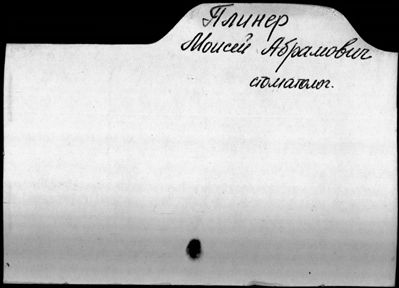 Плинер
Моисей Абрамович
стоматолог.